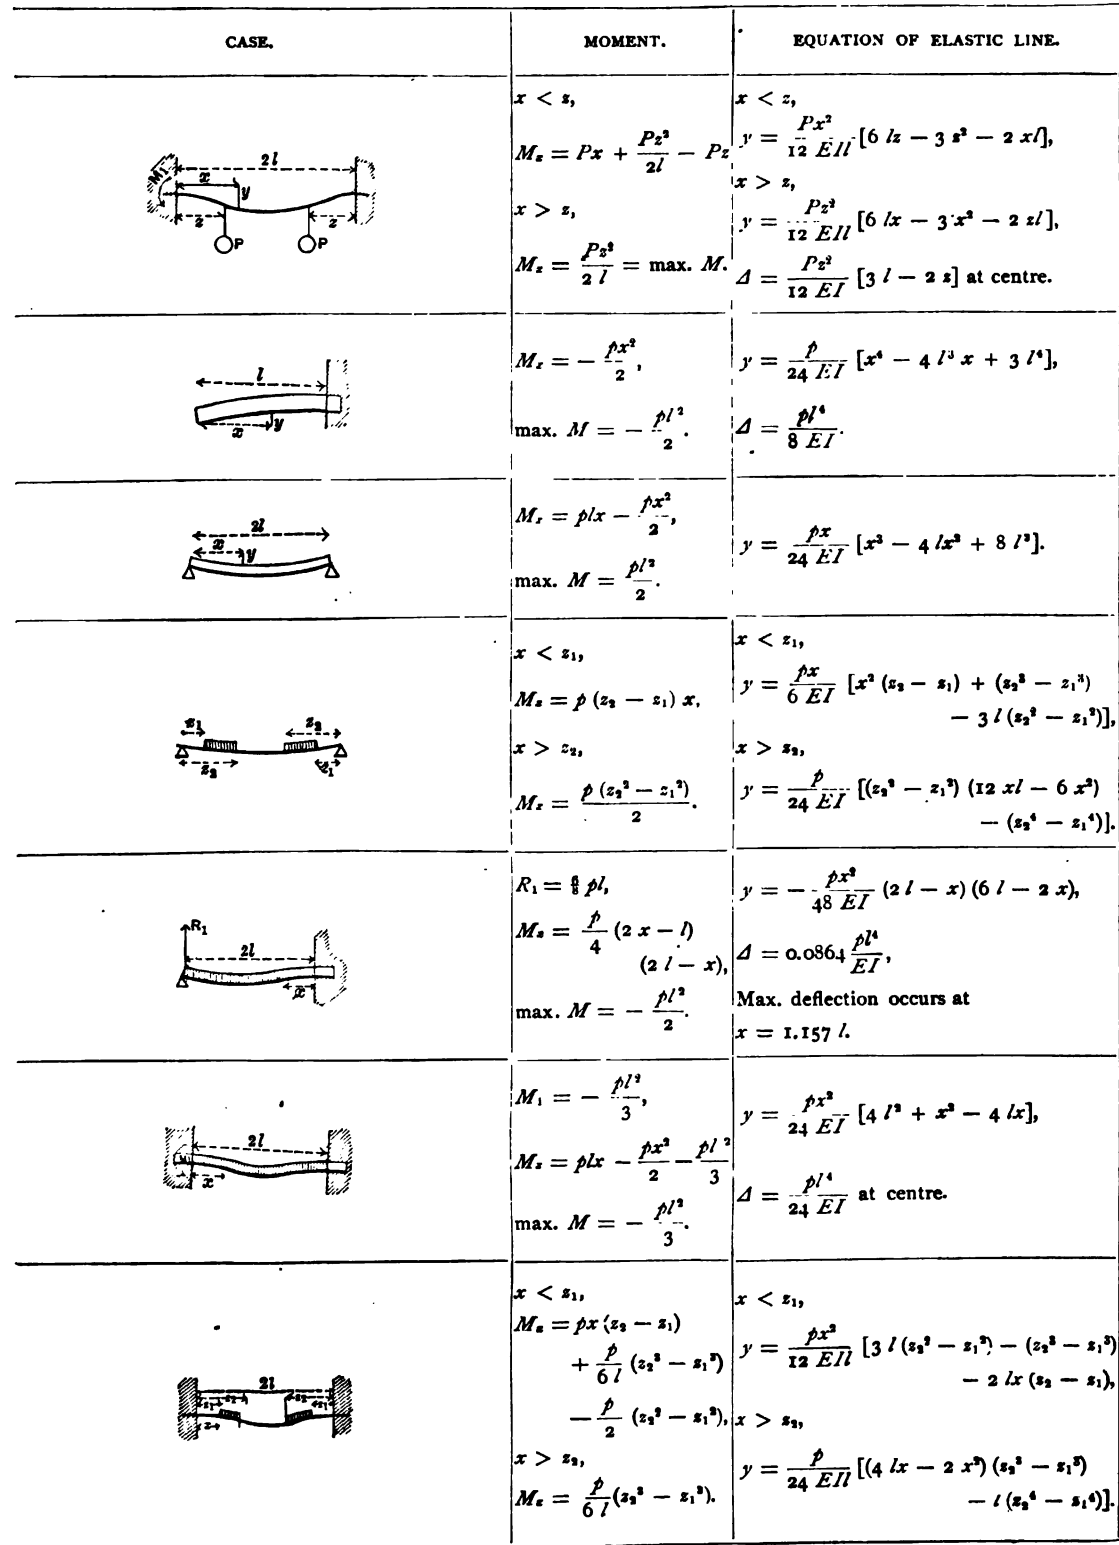 CASE. MOMENT. EQUATION OF ELASTIC LINE.
2l
x
y
M₁
z z
P P
x < z,
Mₓ = Px + Pz²/2l − Pz
x > z,
Mₓ = Pz²/2 l = max. M.
x < z,
y = Px²/12 EIl [6 lz − 3 z² − 2 xl],
x > z,
y = Pz²/12 EIl [6 lx − 3 x² − 2 zl],
Δ = Pz²/12 EI [3 l − 2 z] at centre.
l
x y
Mₓ = − px²/2,
max. M = − pl²/2.
y = p/24 EI [x⁴ − 4 l³ x + 3 l⁴],
Δ = pl⁴/8 EI.
2l
x y
Mₓ = plx − px²/2,
max. M = pl²/2.
y = px/24 EI [x³ − 4 lx² + 8 l³].
z₁ z₂
z₂ z₁
x < z₁,
Mₓ = p (z₂ − z₁) x,
x > z₂,
Mₓ = p (z₂² − z₁²)/2.
x < z₁,
y = px/6 EI [x² (z₂ − z₁) + (z₂³ − z₁³)
− 3 l (z₂² − z₁²)],
x > z₂,
y = p/24 EI [(z₂² − z₁²) (12 xl − 6 x²)
− (z₂⁴ − z₁⁴)].
R₁
2l
x
R₁ = pl,
Mₓ = p/4 (2 x − l)
(2 l − x),
max. M = − pl²/2.
y = − px²/48 EI (2 l − x) (6 l − 2 x),
Δ = 0.0864 pl⁴/EI,
Max. deflection occurs at
x = 1.157 l.
2l
x
M₁ = − pl²/3,
Mₓ = plx − px²/2 − pl²/3
max. M = − pl²/3.
y = px²/24 EI [4 l² + x² − 4 lx],
Δ = pl⁴/24 EI at centre.
2l
z₂ z₂
z₁ z₁
x
x < z₁,
Mₓ = px (z₂ − z₁)
+ p/6 l (z₂³ − z₁³)
− p/2 (z₂² − z₁²),
x > z₂,
Mₓ = p/6 l (z₂³ − z₁³).
x < z₁,
y = px²/12 EIl [3 l (z₂² − z₁²) − (z₂³ − z₁³)
− 2 lx (z₂ − z₁),
x > z₂,
y = p/24 EIl [(4 lx − 2 x²) (z₂³ − z₁³)
− l (z₂⁴ − z₁⁴)].